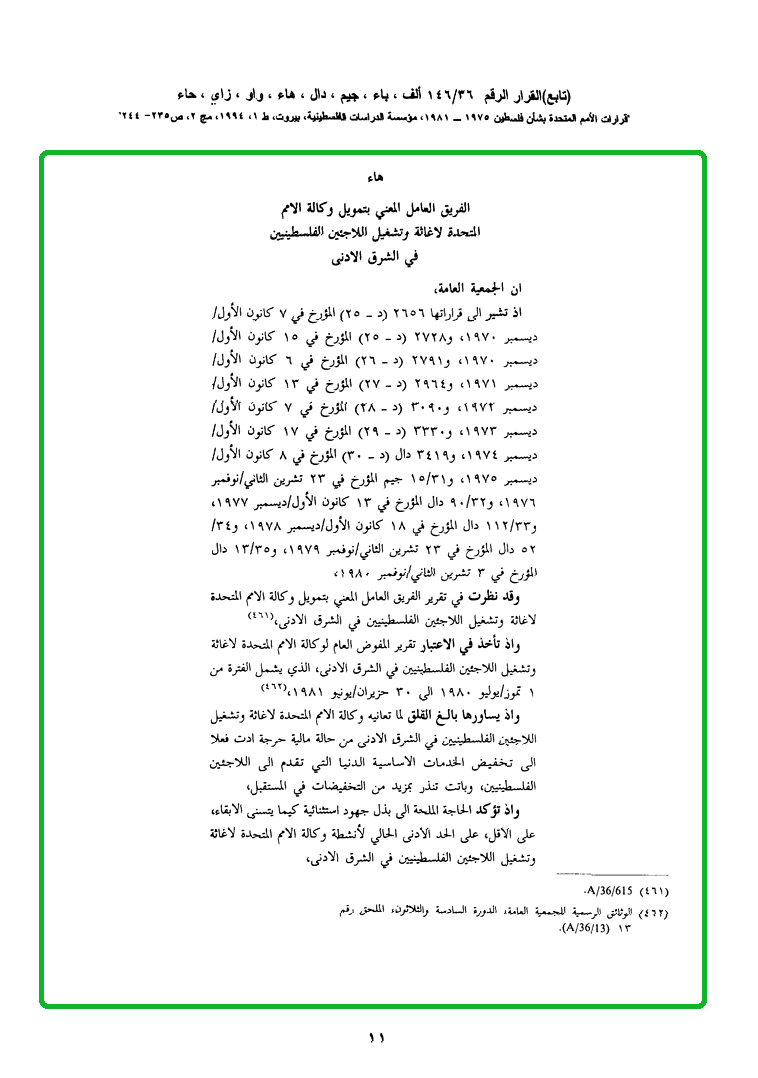 (تابع)القرار الرقم ١٤٦/٣٦ ألف ، باء ، جيم ، دال ، هاء ، واو ، زاي ، حاء
"قرارات الأمم المتحدة بشأن فلسطين ١٩٧٥ – ١٩٨١، مؤسسة الدراسات الفلسطينية، بيروت، ط ١، ١٩٩٤، مج ٢، ص٢٣٥- ٢٤٤"
هاء
الفريق العامل المعني بتمويل وكالة الامم
المتحدة لاغاثة وتشغيل اللاجئين الفلسطينيين
في الشرق الادنى
ان الجمعية العامة،
اذ تشير الى قراراتها ٢٦٥٦ (د – ٢٥) المؤرخ في ٧ كانون الأول/
ديسمبر ١٩٧٠، و٢٧٢٨ (د – ٢٥) المؤرخ في ١٥ كانون الأول/
ديسمبر ١٩٧٠، و٢٧٩١ (د – ٢٦) المؤرخ في ٦ كانون الأول/
ديسمبر ١٩٧١، و٢٩٦٤ (د – ٢٧) المؤرخ في ١٣ كانون الأول/
ديسمبر ١٩٧٢، و٣٠٩٠ (د – ٢٨) المؤرخ في ٧ كانون الأول/
ديسمبر ١٩٧٣، و٣٣٣٠ (د – ٢٩) المؤرخ في ١٧ كانون الأول/
ديسمبر ١٩٧٤، و٣٤١٩ دال (د – ٣٠) المؤرخ في ٨ كانون الأول/
ديسمبر ١٩٧٥، و١٥/٣١ جيم المؤرخ في ٢٣ تشرين الثاني/نوفمبر
١٩٧٦، و٩٠/٣٢ دال المؤرخ في ١٣ كانون الأول/ديسمبر ١٩٧٧،
و١١٢/٣٣ دال المؤرخ في ١٨ كانون الأول/ديسمبر ١٩٧٨، و٣٤/
٥٢ دال المؤرخ في ٢٣ تشرين الثاني/نوفمبر ١٩٧٩، و١٣/٣٥ دال
المؤرخ في ٣ تشرين الثاني/نوفمبر ١٩٨٠،
وقد نظرت في تقرير الفريق العامل المعني بتمويل وكالة الامم المتحدة
لاغاثة وتشغيل اللاجئين الفلسطينيين في الشرق الادنى،(٤٦١)
واذ تأخذ في الاعتبار تقرير المفوض العام لوكالة الامم المتحدة لاغاثة
وتشغيل اللاجئين الفلسطينيين في الشرق الادنى، الذي يشمل الفترة من
١ تموز/يوليو ١٩٨٠ الى ٣٠ حزيران/يونيو ١٩٨١،(٤٦٢)
واذ يساورها بالغ القلق لما تعانيه وكالة الامم المتحدة لاغاثة وتشغيل
اللاجئين الفلسطينيين في الشرق الادنى من حالة مالية حرجة ادت فعلا
الى تخفيض الخدمات الاساسية الدنيا التي تقدم الى اللاجئين
الفلسطينيين، وباتت تنذر بمزيد من التخفيضات في المستقبل،
واذ تؤكد الحاجة الملحة الى بذل جهود استثنائية كيما يتسنى الابقاء،
على الاقل، على الحد الادنى الحالي لأنشطة وكالة الامم المتحدة لاغاثة
وتشغيل اللاجئين الفلسطينيين في الشرق الادنى،
(٤٦١) A/36/615.
(٤٦٢) الوثائق الرسمية للجمعية العامة، الدورة السادسة والثلاثون، الملحق رقم
١٣ (A/36/13).
١١